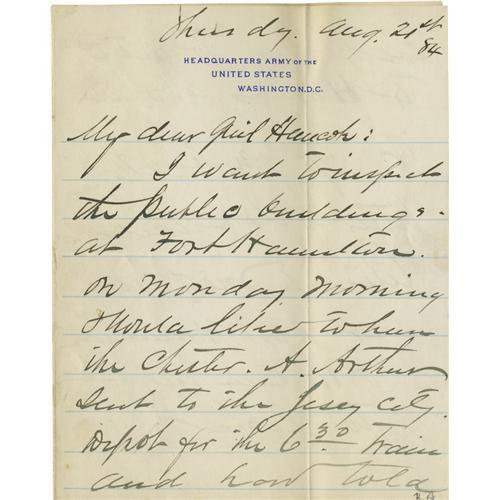 Thursdy. Aug. 21st
84
HEADQUARTERS ARMY OF THE
UNITED STATES
WASHINGTON, D.C.
My dear Genl Hancock:
I want to inspect
the public buildings
at Fort Hamilton.
on Monday Morning
should like to have
the Chester. A. Arthur
sent to the Jersey City
Depot for the 6 30 train
and